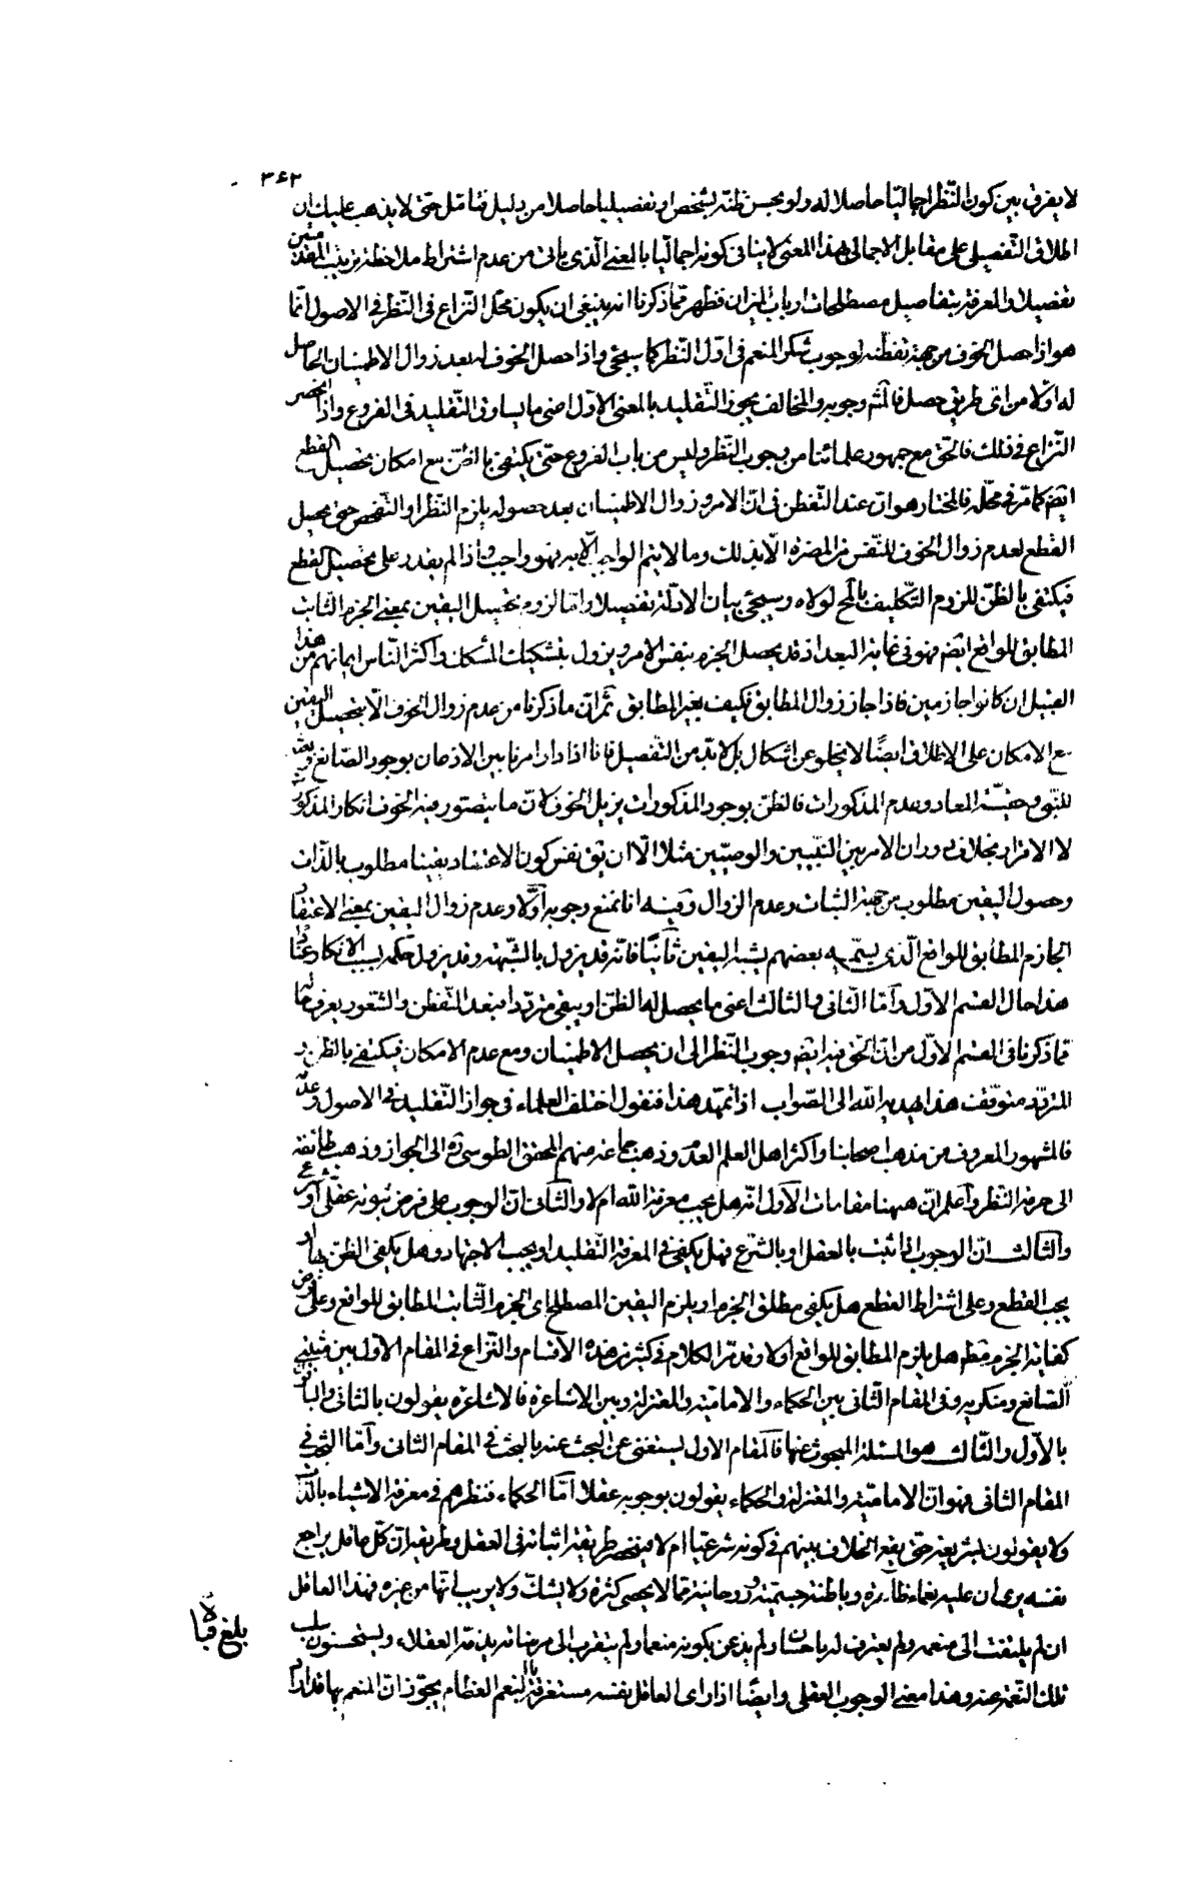 ٣٤٢
لا يفرق بين كون النّظر اجماليّا حاصلا له ولو بحسن ظنّه بشخص او تفصيليا حاصلا من دليل فتامّل حتى لا يذهب عليك ان
اطلاق التّفصيلى على مقابل الاجمالى بهذا المعنى لا ينافى كونه اجماليّا بالمعنى الّذى ياتى من عدم اشتراط ملاحظة ترتيب المقدّمتين
تفصيلا والمعرفة بتفاصيل مصطلحات ارباب الميزان فظهر ممّا ذكرنا انه ينبغى ان يكون محلّ النّزاع فى النّظر فى الاصول انّما
هو اذا حصل الخوف من جهة تفطّنه لوجوب شكر المنعم فى اوّل النّظر كما سيجئ واذا حصل الخوف له بعد زوال الاطمينان الحاصل
له اوّلا من اىّ طريق حصل فالمثبت وجوبه والمخالف يجوز التّقليد بالمعنى الاوّل اعنى ما يساوق التّقليد فى الفروع واذا انحصر
النّزاع فى ذلك فالحقّ مع جمهور علمائنا من وجوب النّظر وليس من باب الفروع حتّى يكتفى بالظّنّ مع امكان تحصيل القطع
ايضا كما مرّ فى محلّه فالمختار هو انّ عند التّفطّن فى اوّل الامر وزوال الاطمينان بعد حصوله يلزم النّظر او التّفحص حتى يحصل
القطع لعدم زوال الخوف للنّفس من المضرّة الّا بذلك وما لا يتم الواجب الّا به فهو واجب واذا لم يقدر على تحصيل القطع
فيكتفى بالظّنّ للزوم التّكليف بالمحال لولاه وسيجئ بيان الادلّة تفصيلا وامّا لزوم تحصيل اليقين بمعنى الجزم الثابت
المطابق للواقع ايضا فهو فى غاية البعد اذ قد يحصل الجزم بنفس الامر ويزول بتشكيك المشكك واكثر النّاس ايمانهم من هذا
القبيل ان كانوا جازمين فاذا جاز زوال المطابق فكيف بغير المطابق ثمّ انّ ما ذكرنا من عدم زوال الخوف الّا بتحصيل اليقين
مع الامكان على الاطلاق ايضًا لا يخلو عن اشكال بل لا بدّ من التّفصيل فانا اذا دار امرنا بين الاذعان بوجود الصّانع
للنّبى وحقيّة المعاد وعدم المذكورات فالظّنّ بوجود المذكورات يزيل الخوف لانّ ما يتصور فيه الخوف انكار المذكورات
لا الاقرار بخلاف دوران الامر بين النّبيين والوصيّين مثلا الّا ان يق نفس كون الاعتقاد يقينا مطلوب بالذّات
وحصول اليقين مطلوب من جهة الثبات وعدم الزوال وفيه انا نمنع وجوبه اوّلا وعدم زوال اليقين بمعنى الاعتقاد
الجازم المطابق للواقع الّذى يسمّيه بعضهم بشبه اليقين ثانيًا فانّه قد يزول بالشّبهة وقد يزول حكمه بسبب الانكار عنادا
هذا حال القسم الاوّل وامّا الثّانى والثالث اعنى ما يحصل له الظنّ او يبقى متردّدا فبعد التّفطّن والشّعور يعرف حالهما
ممّا ذكرنا فى القسم الاوّل من انّ الحقّ فيه ايضا وجوب النّظر الى ان يحصل الاطمينان ومع عدم الامكان فيكتفى بالظنّ و
المتردّد متوقّف هذا يهديه اللّه الى الصّواب اذا تمهّد هذا فنقول اختلف العلماء فى جواز التّقليد فى الاصول وعدمه
فالمشهور المعروف من مذهب اصحابنا واكثر اهل العلم العدم وذهب جماعة منهم المحقق الطوسى ره الى الجواز وذهب طائفة
الى حرمة النّظر واعلم انّ ههنا مقامات الاوّل انّه هل يجب معرفة اللّه ام لا والثّانى انّ الوجوب على فرض ثبوته عقلى او شرعى
والثالث انّ الوجوب اذا ثبت بالعقل او بالشّرع فهل يكفى فى المعرفة التّقليد او يجب الاجتهاد وهل يكفى الظنّ بها او
يجب القطع وعلى اشتراط القطع هل يكفى مطلق الجزم او يلزم اليقين المصطلح اى الجزم الثّابت المطابق للواقع وعلى فرض
كفاية الجزم فقط هل يلزم المطابق للواقع او لا وقد مرّ الكلام فى كثير من هذه الاقسام والنّزاع فى المقام الاوّل بين مثبتى
الصّانع ومنكريه وفى المقام الثّانى بين الحكماء والاماميّة والمعتزلة وبين الاشاعرة فالاشاعرة يقولون بالثانى والباقون
بالاوّل والثّالث هو المسئلة المبحوث عنها فالمقام الاول يستغنى عن البحث عنه بالبحث فى المقام الثانى وامّا البحث فى
المقام الثانى فهو انّ الاماميّة والمعتزلة والحكماء يقولون بوجوبه عقلا امّا الحكماء فنظرهم فى معرفة الاشياء بالذّات
ولا يقولون بشريعة حتى يقع الخلاف بينهم فى كونه شرعيّا ام لا فينحصر طريقة اثباته فى العقل وطريقه انّ كلّ عاقل يراجع
نفسه يرى ان عليه نعماء ظاهرة وباطنة جسميّة وروحانية ممّا لا يحصى كثرة ولا يشكّ ولا يريب انّها من غيره فهذا العاقل
ان لم يلتفت الى منعمه ولم يعترف له باحسان ولم يذعن بكونه منعما ولم يتقرب الى مرضاته يذمّه العقلاء ويستحسنون سلب
تلك النّعمة عنه وهذا معنى الوجوب العقلى وايضًا اذا راى العاقل نفسه مستغرقة بالنعم العظام يجوّز انّ المنعم بها قد اراد
بلغ قبالا